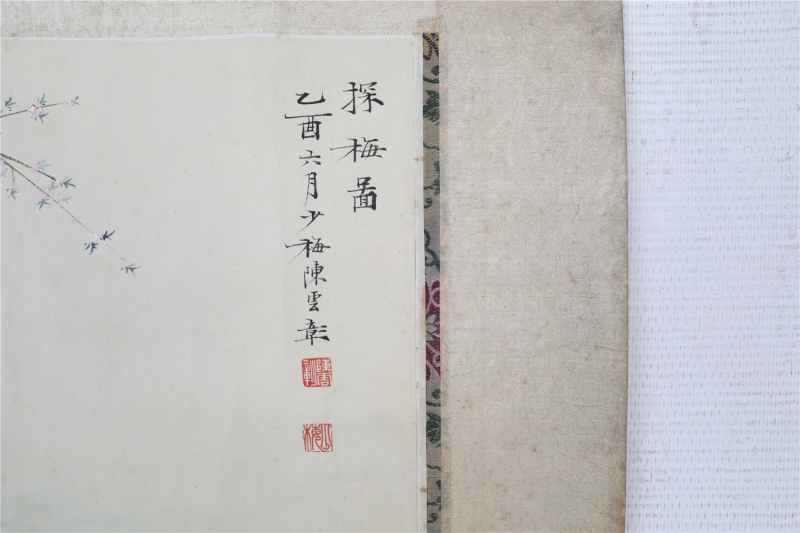 探梅啚
乙酉六月少梅陳雲彰